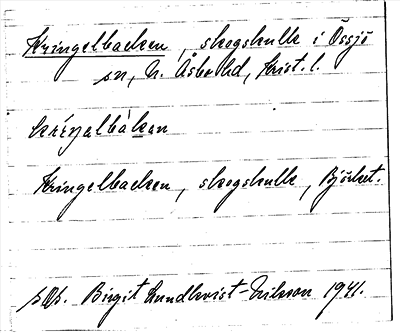 Kringelbacken, skogskulle i Össjö
sn, N. Åsbo hd, Krist. l.
kríŋəlbàkən
Kringelbacken, skogskulle, Björket.
Birgit Lundkvist-Eriksson 1941.